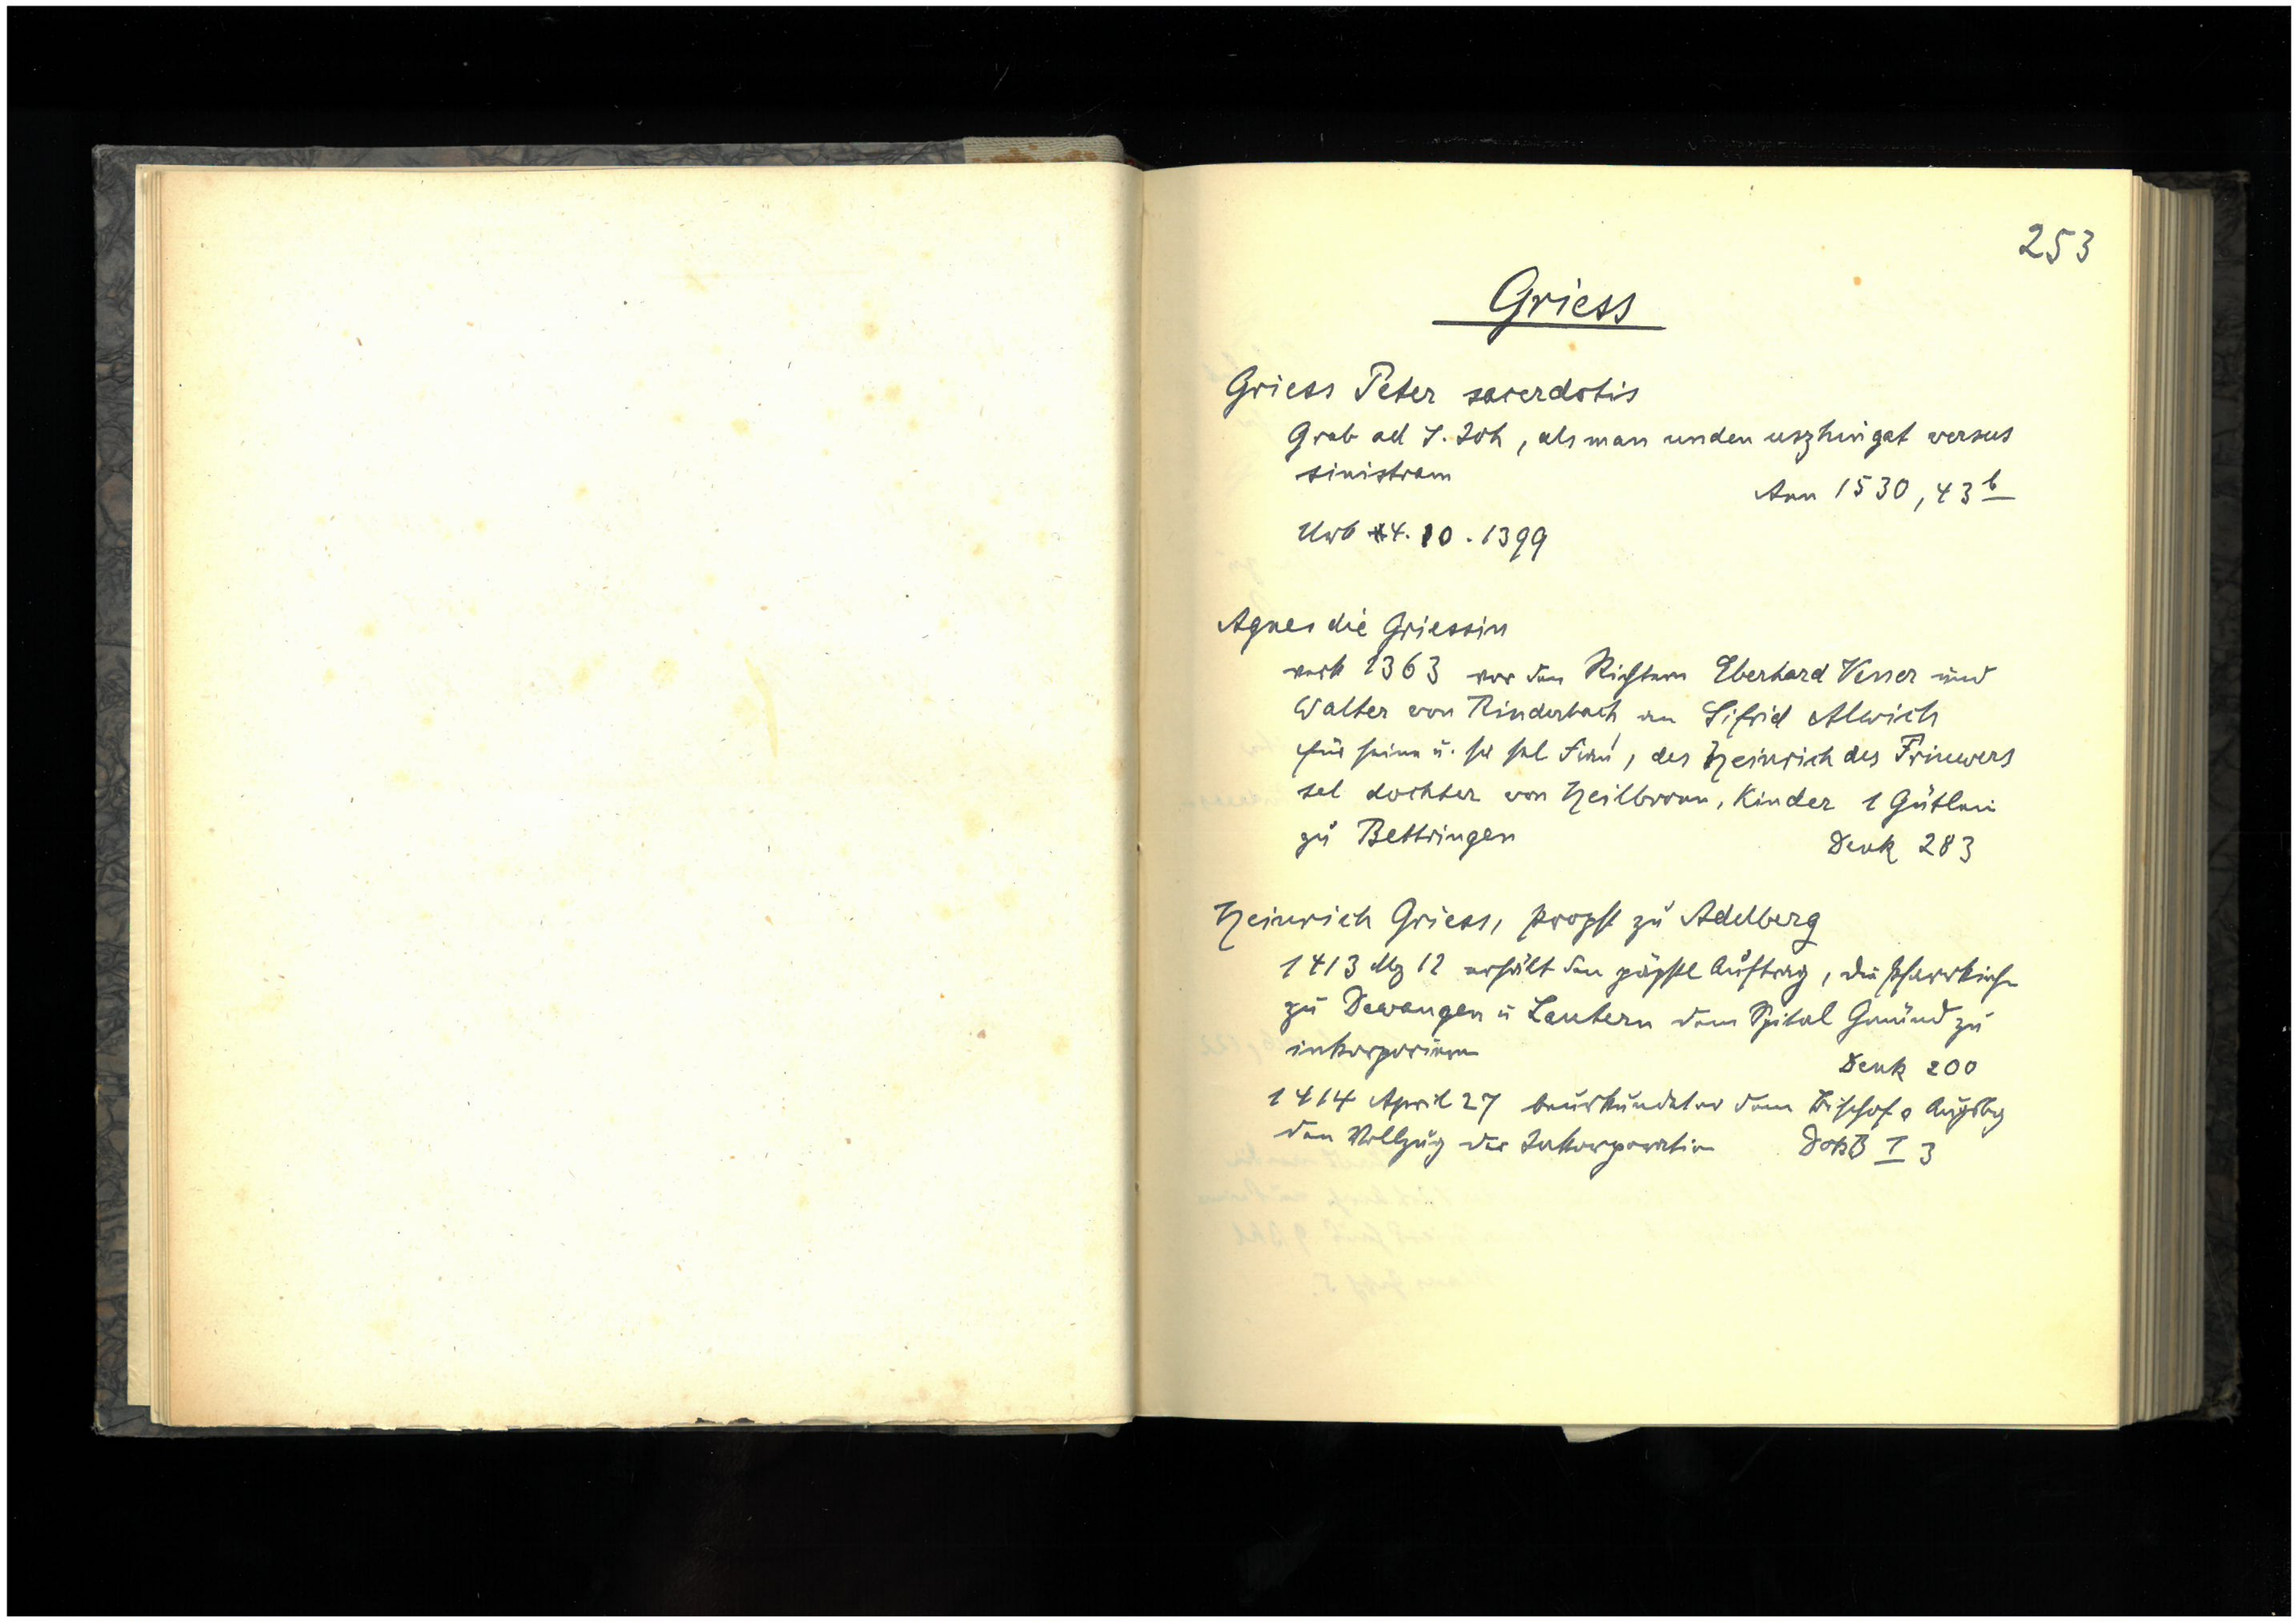 253
Griess
Griess Peter sacerdotis
Grab ad S. Joh, als man unden uszhin gat versus
sinistram
Ann 1530, 43b
Urb 4. 10. 1399
Agnes die Griessin
verk 1363 vor den Richtern Eberhard Vener und
Walter von Rinderbach an Sifrid Alwich
für seine u. sr sel Frau, der Heinrich des Triuwers
sel dochter von Heilbronn, Kinder 1 Gütlein
zu Bettringen
Denk 283
Heinrich Griess, propst zu Adelberg
1413 Mz 12 erhält den päpstl Auftrag, die Pfarrkirche
zu Dewangen u Lautern dem Spital Gmünd zu
inkorporieren
Denk 200
1414 April 27 beurkundet er dem Bischof v Augsbg
den Vollzug der Inkorporation
I 3